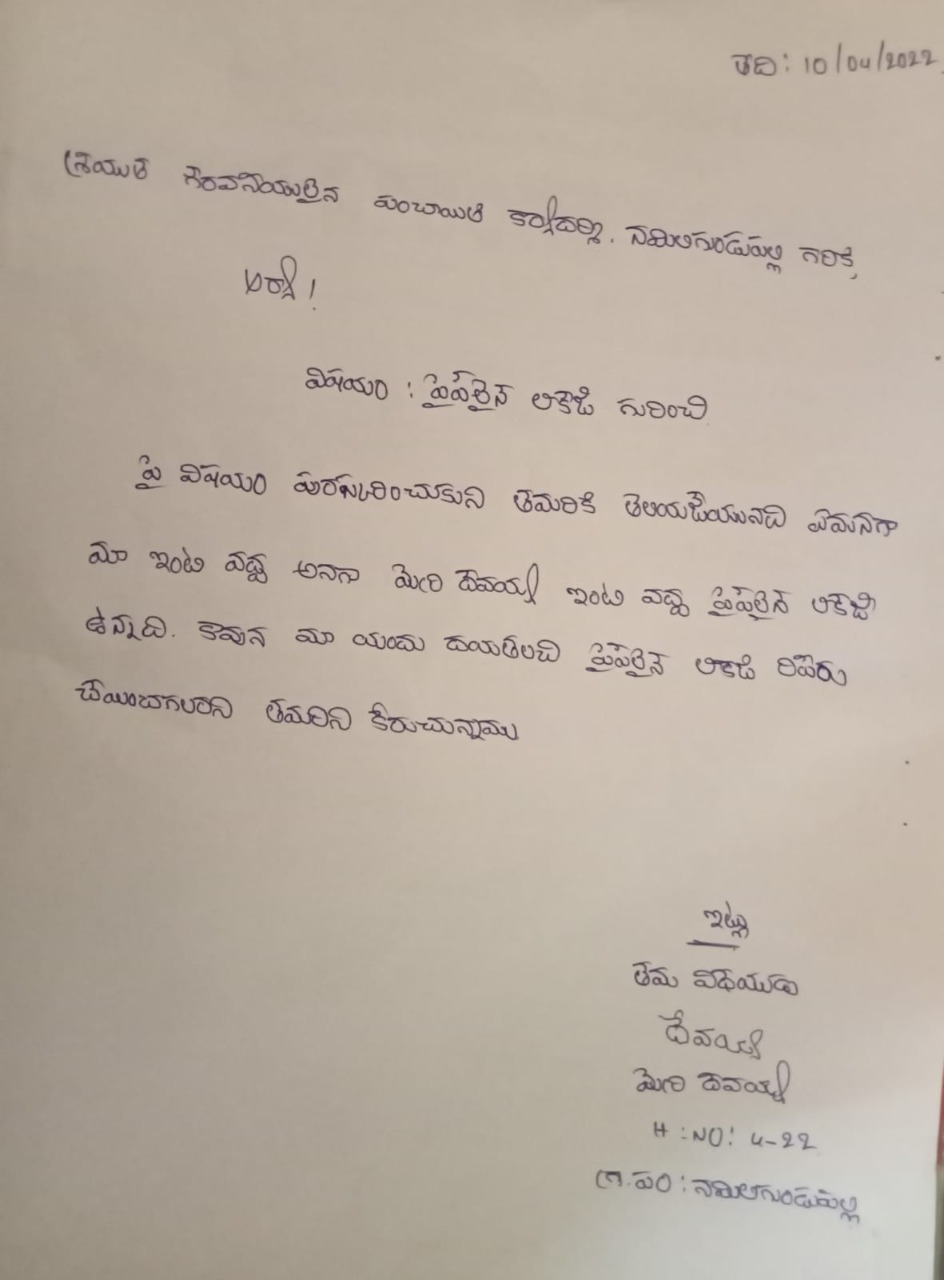 తేది: 10/04/2022
శ్రీయుత గౌరవనీయులైన పంచాయితి కార్యదర్శి, నమిలిగుండుపల్లి గారికి,
ఆర్యా!
విషయం : పైప్‌లైన్ లికేజి గురించి
పై విషయం పురస్కరించుకుని తమరికి తెలియజేయునది ఏమనగా
మా ఇంటి వద్ద అనగా మేరి దేవయ్య ఇంటి వద్ద పైప్‌లైన్ లికేజి
ఉన్నది. కావున మా యందు దయతలచి పైప్‌లైన్ లికేజి రిపేరు
చేయించగలరని తమరిని కోరుచున్నాము
ఇట్లు
తమ విధేయుడు
దేవయ్య
మేరి దేవయ్య
H : NO: 4-22
గ్రా.పం : నమిలిగుండుపల్లి